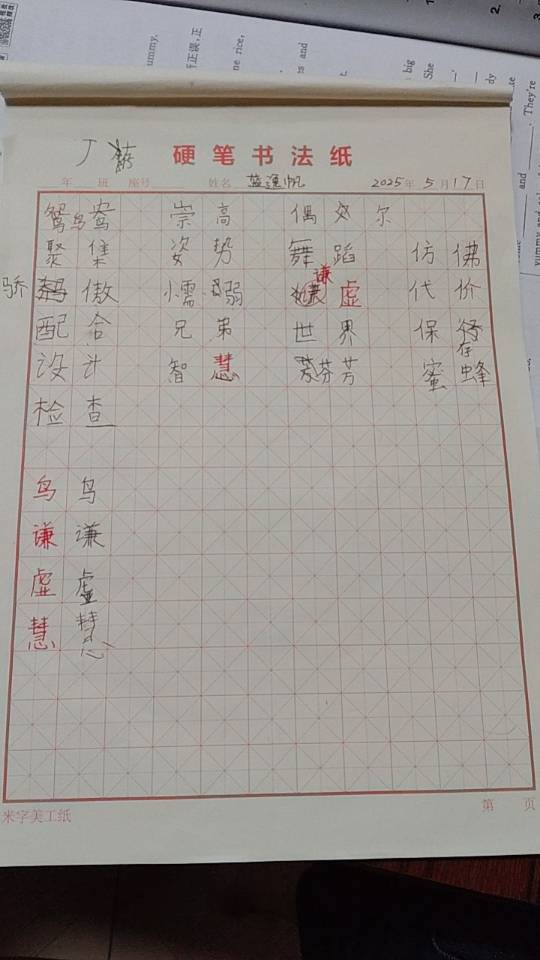 硬笔书法纸
年 班 座号 姓名 蓝 帆 2025年5月17日
鸳鸟鸯 崇高 偶尔
聚集 姿势 舞蹈 仿佛
骄傲 懦弱 谦虚 代价
配合 兄弟 世界 保存
设计 智慧 芬芳 蜜蜂
检查
鸟鸟
谦谦
虚虚
慧慧
米字美工纸 第 页
ummy,
正误,正
ne rice,
ns and
t.
big
She
dy
te
and
They're
2.
3.